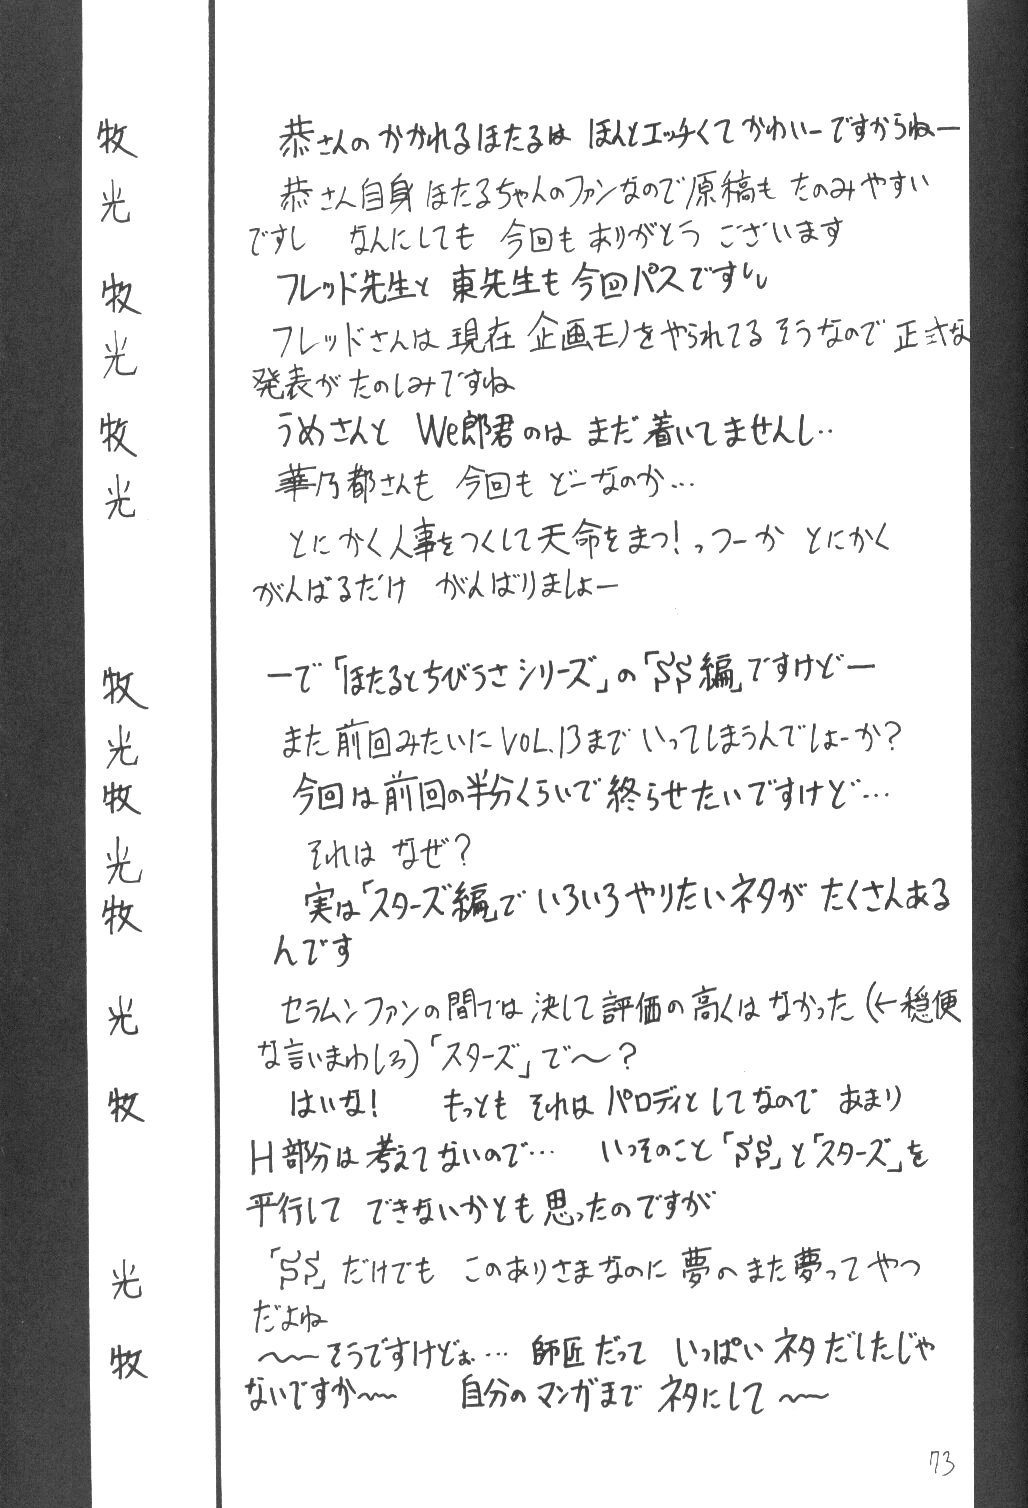 牧 恭さんのかかれるほたるは ほんとエッチくてかわいーですからねー
光 恭さん自身ほたるちゃんのファンなので原稿も たのみやすい
ですし なんにしても 今回も ありがとう ございます
牧 フレッド先生と 東先生も今回パスですしし
光 フレッドさんは現在 企画モノをやられてる そうなので 正式な
発表が たのしみですね
牧 うめさんと We郎君のは まだ着いてませんし‥
光 華乃都さんも 今回も どーなのか…
とにかく人事をつくして天命をまつ!っつーか とにかく
がんばるだけ がんばりましょー
牧 ーで「ほたるとちびうさシリーズ」の「SS編」ですけどー
光 また前回みたいにVOL.13まで いってしまうんでしょーか?
牧 今回は前回の半分くらいで終らせたいですけど…
光 それは なぜ?
牧 実は「スターズ編」で いろいろやりたいネタが たくさんある
んです
光 セラムンファンの間では決して評価の高くはなかった(←穏便
な言いまわしろ)「スターズ」で〜?
牧 はいな! もっとも それは パロディとしてなので あまり
H部分は考えてないので… いっそのこと「SS」と「スターズ」を
平行して できないかとも思ったのですが
光 「SS」だけでも このありさまなのに 夢のまた夢ってやつ
だよね
牧 〜〜そうですけどぉ… 師匠だって いっぱい ネタだしたじゃ
ないですか〜〜 自分のマンガまで ネタにして〜〜
73